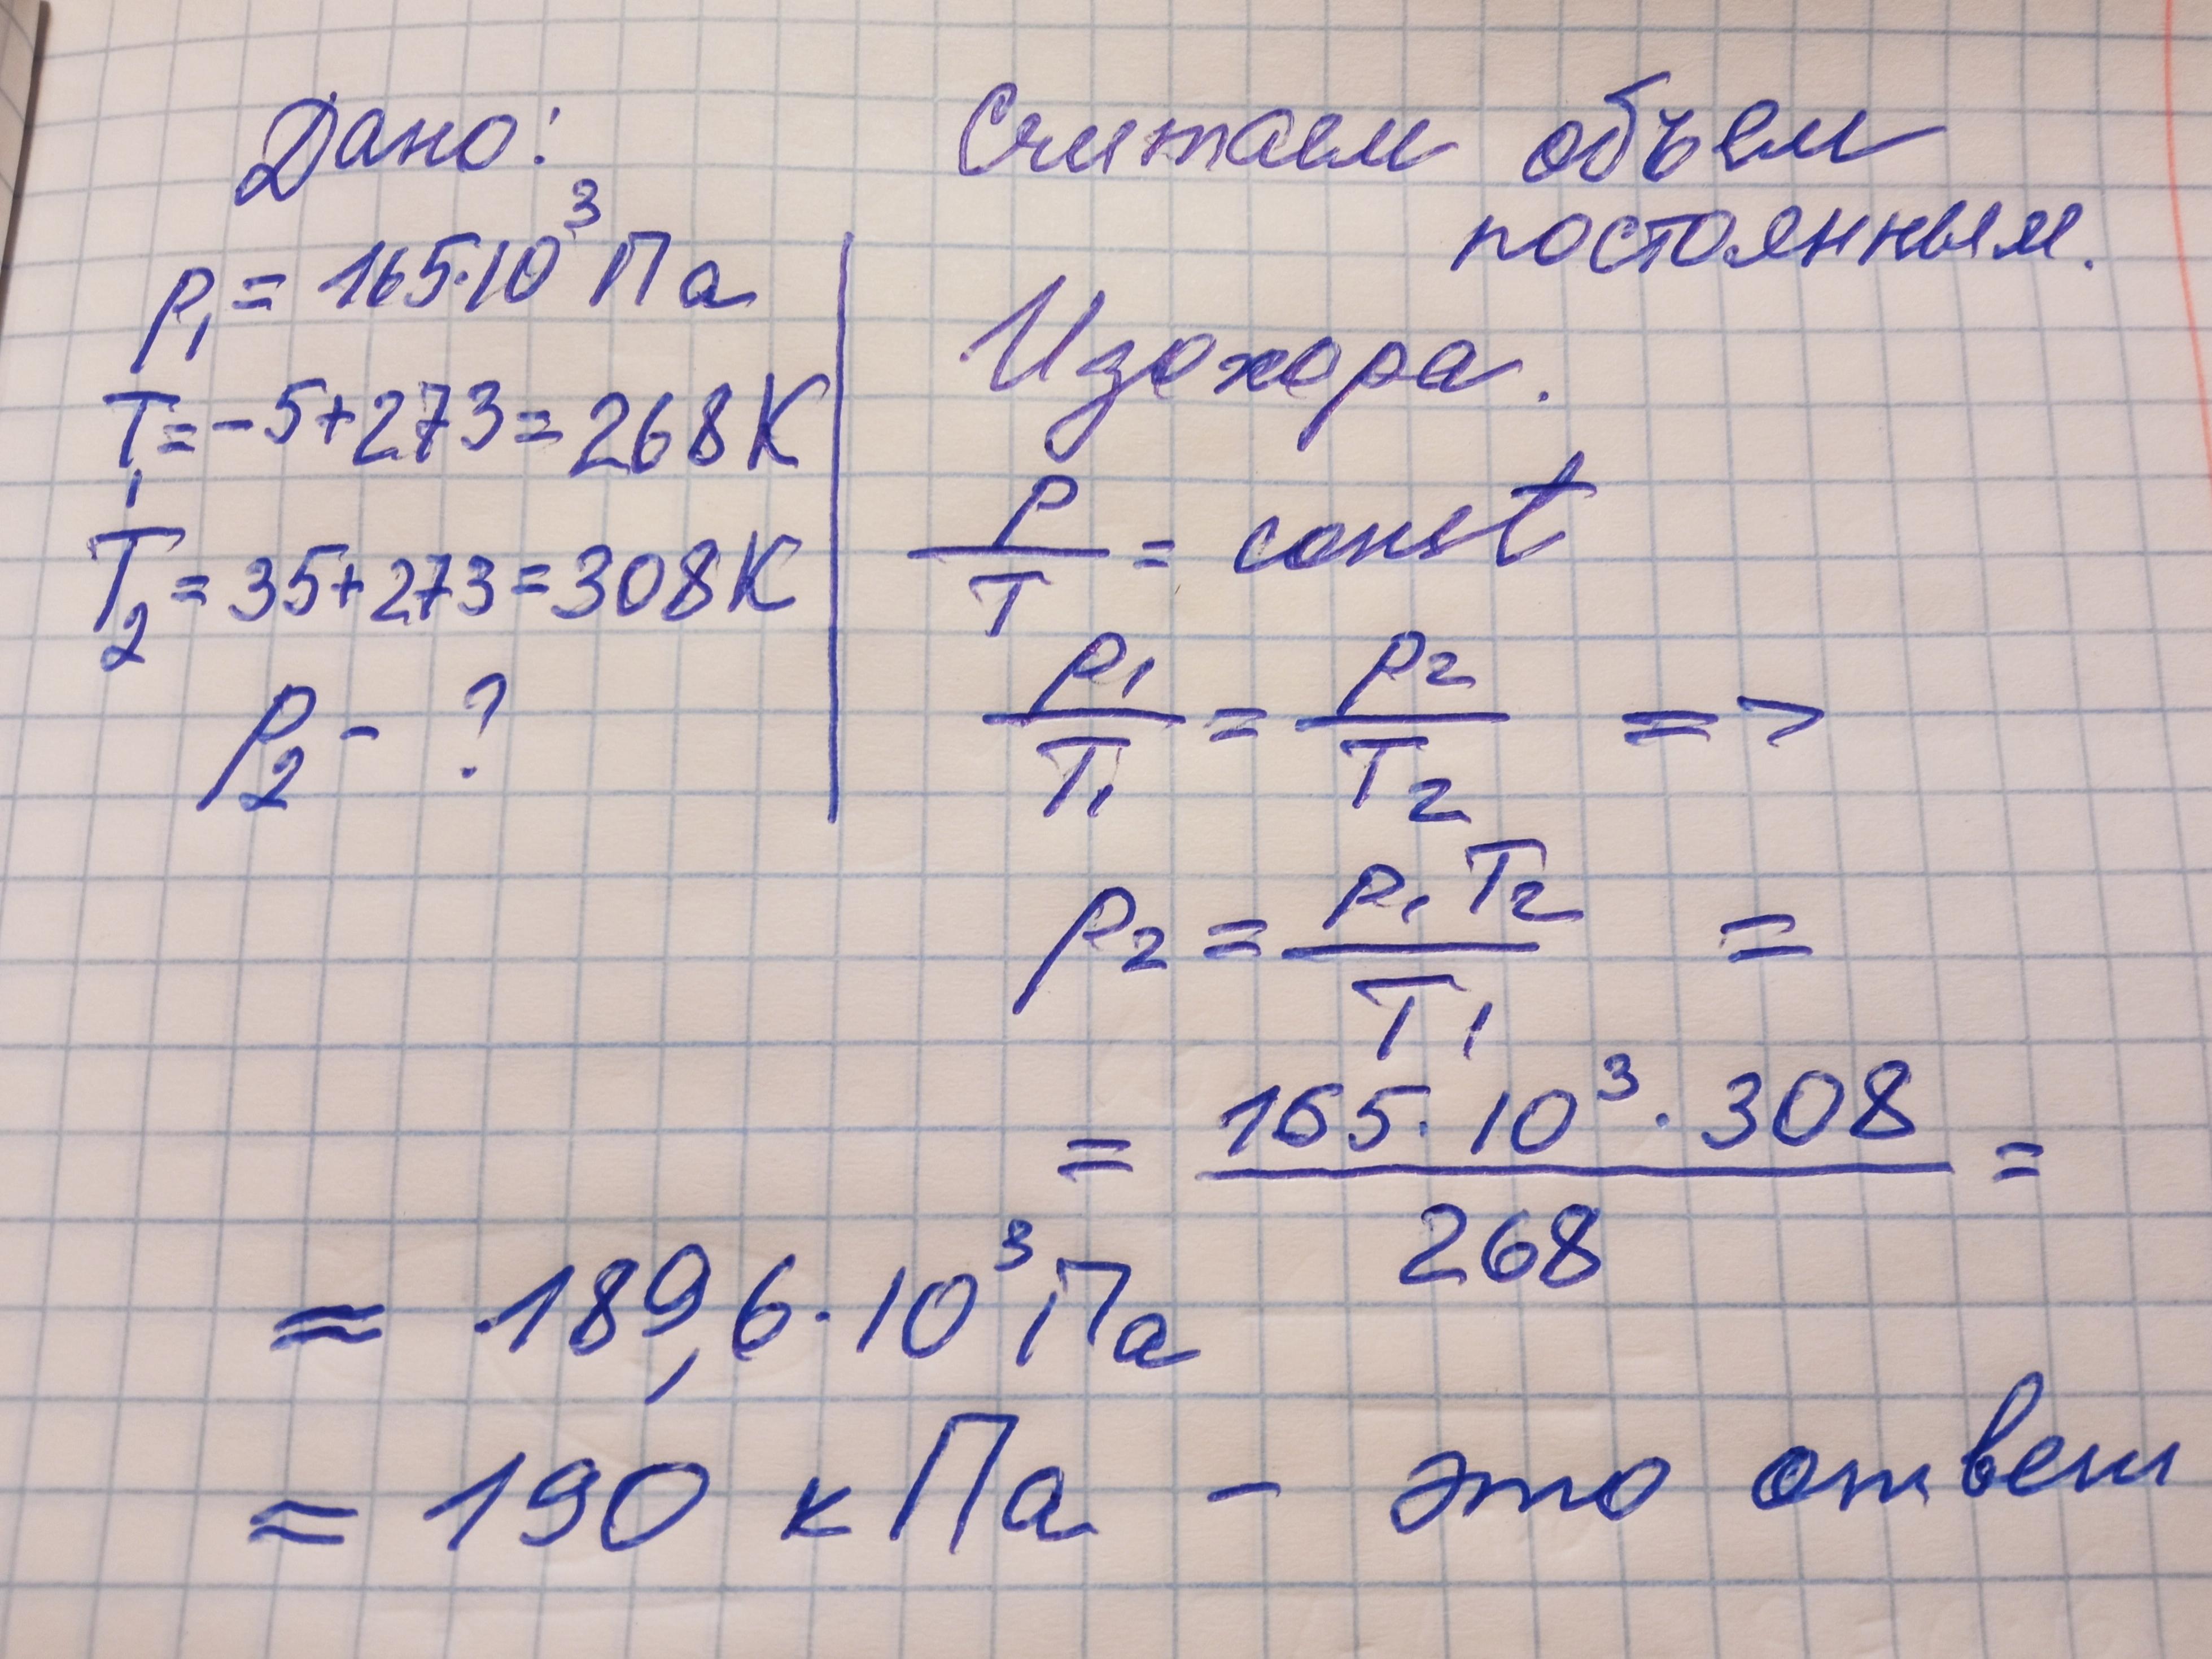 Дано:
p₁ = 165·10³ Па
T₁ = -5+273 = 268 К
T₂ = 35+273 = 308 К
p₂ - ?
Считаем объем
постоянным.
Изохора.
p/T = const
p₁/T₁ = p₂/T₂ =>
p₂ = p₁T₂/T₁ =
= 165·10³·308/268 =
≈ 189,6·10³ Па
≈ 190 кПа - это ответ